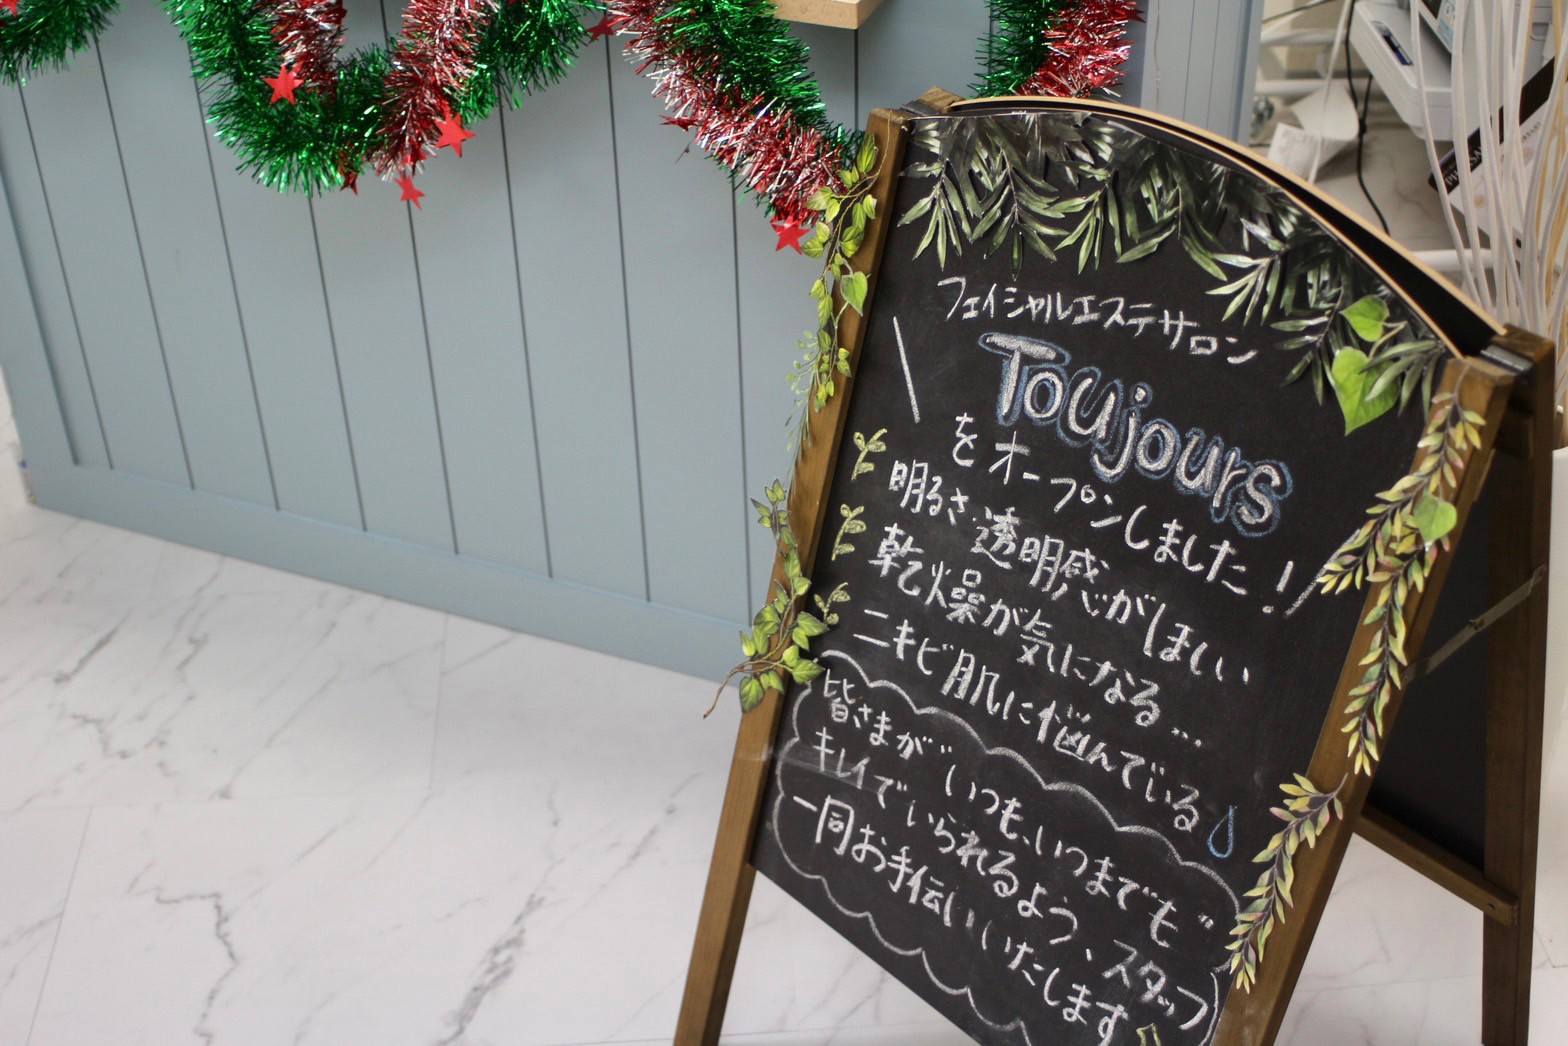 フェイシャルエステサロン
Toujours
をオープンしました!
明るさ、透明感がほしい、
乾燥が気になる…
ニキビ肌に悩んでいる
皆さまが… いつも、いつまでも…
キレイでいられるよう、スタッフ
一同お手伝いいたします